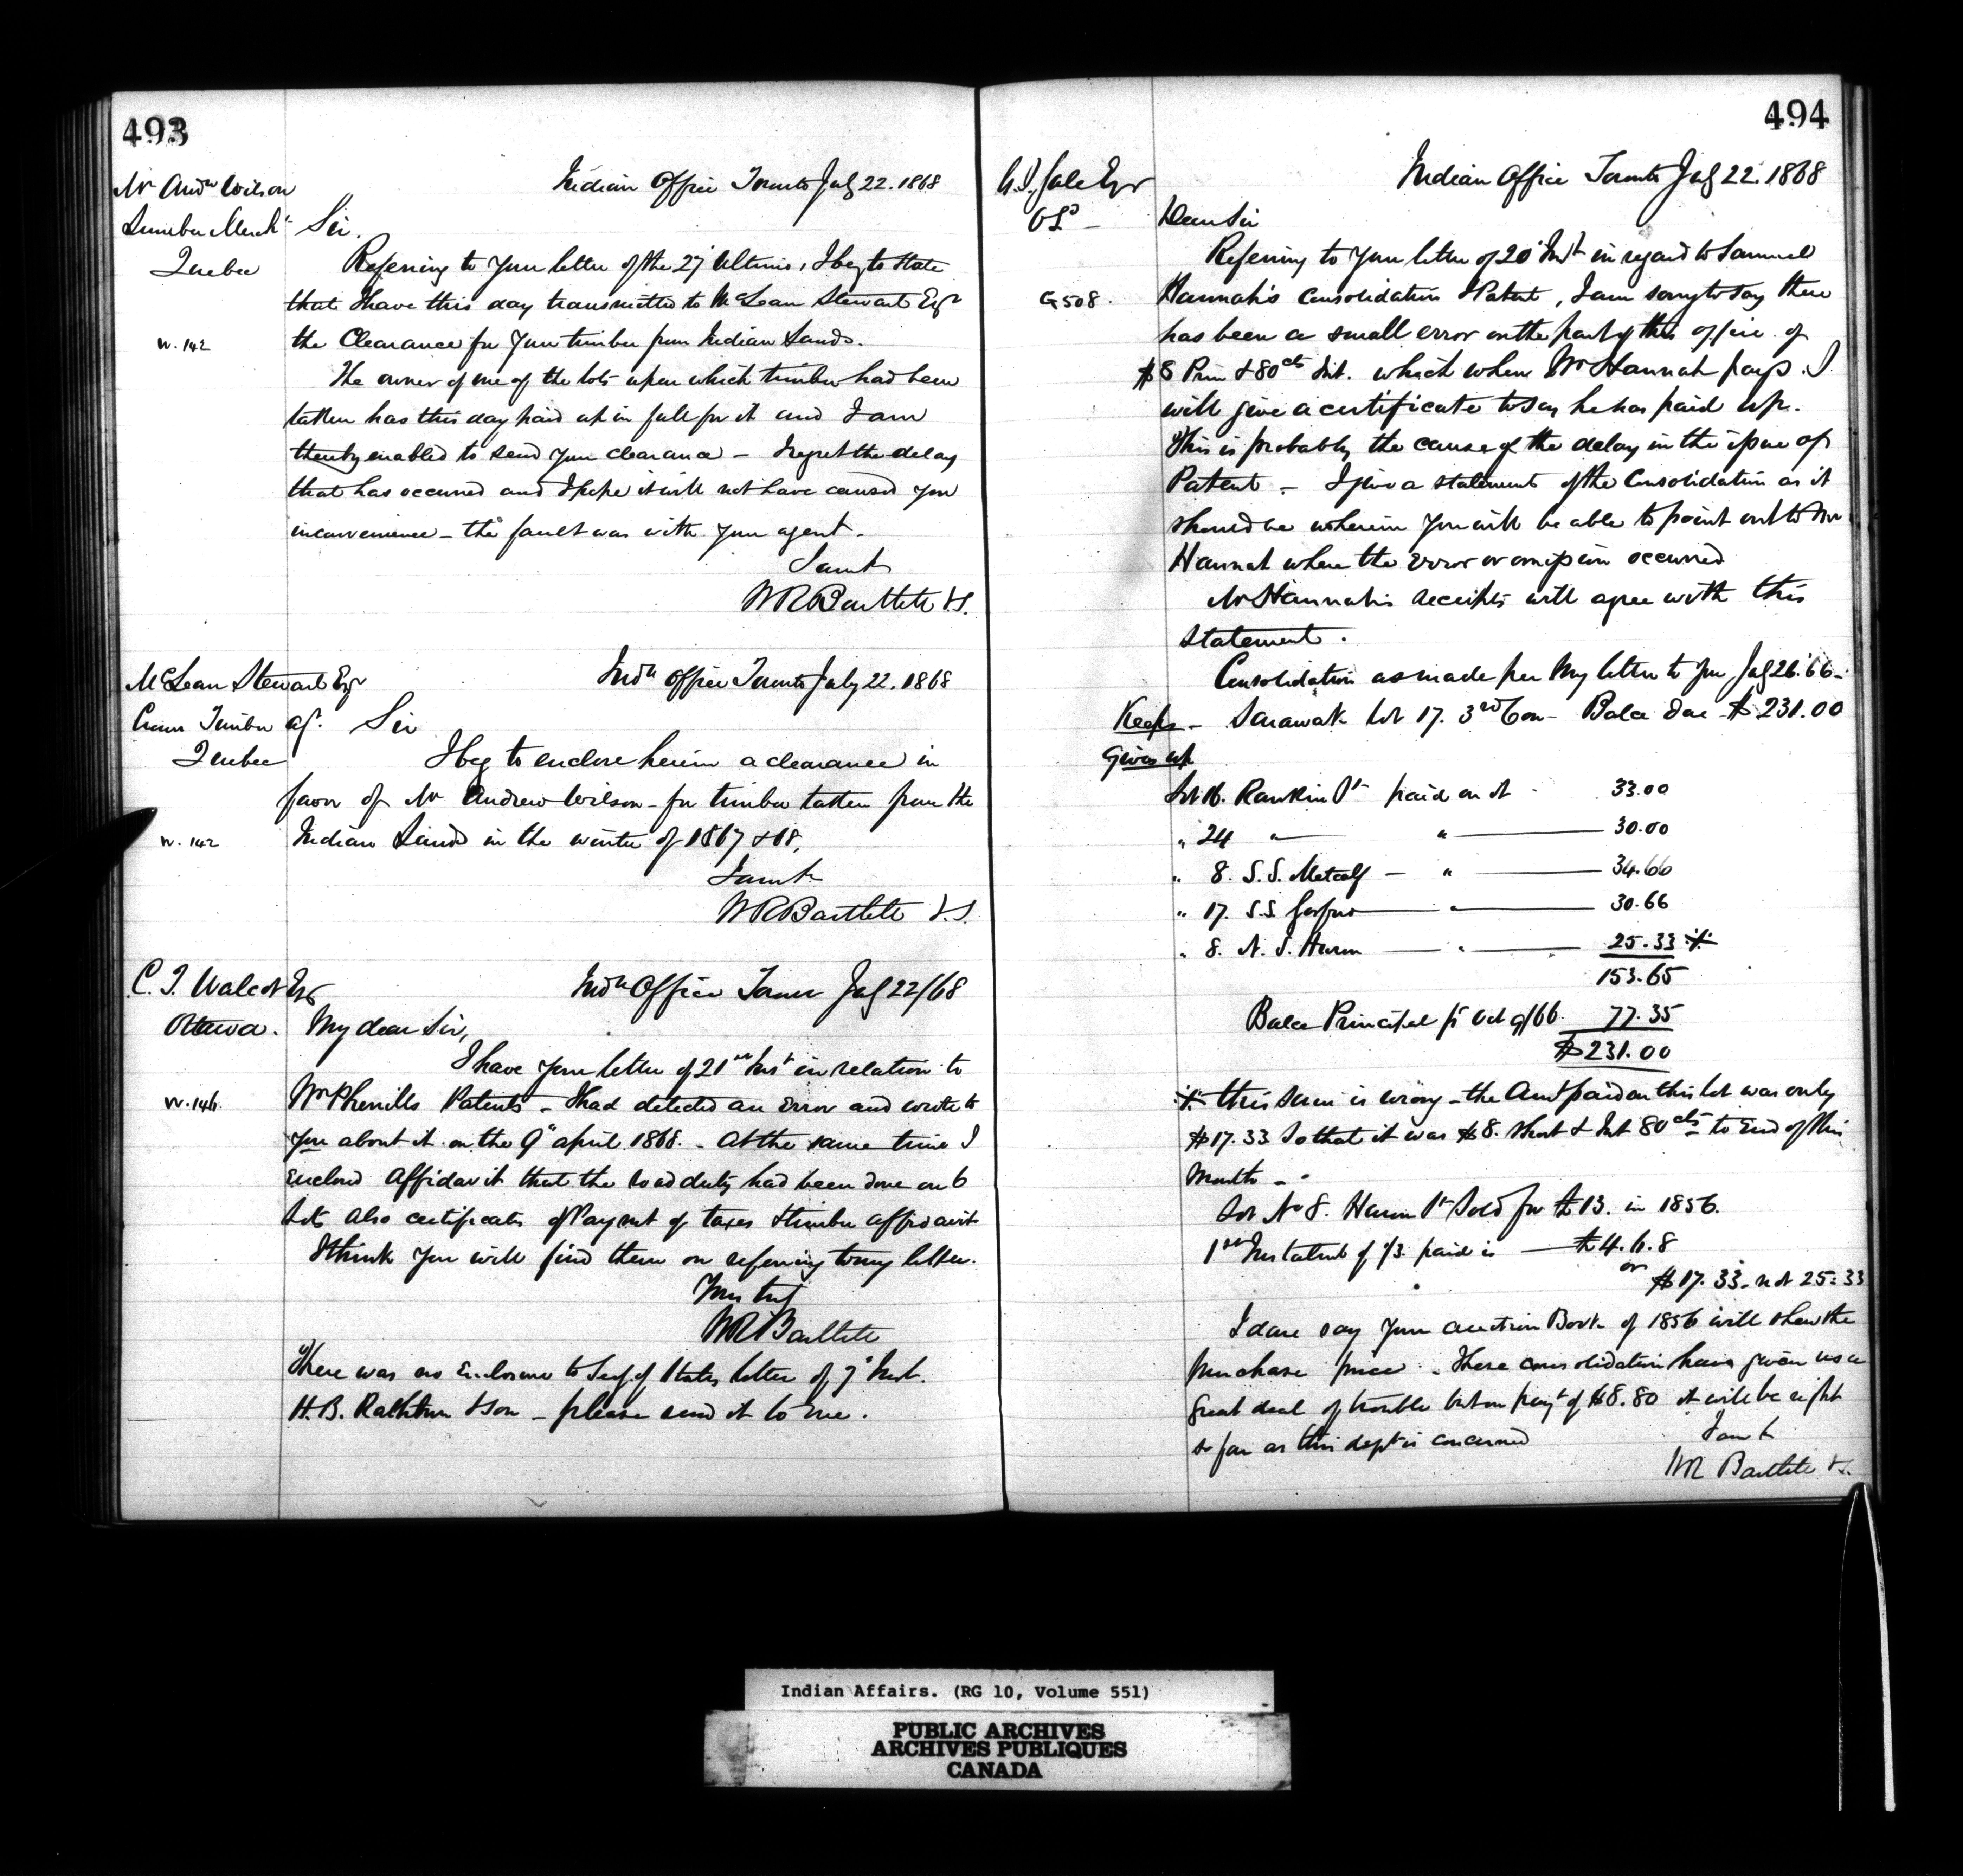 493
Mr Andw Wilson
Lumber Mercht
Quebec
Indian Office Toronto July 22. 1868
Sir.
Referring to your letter of the 27 Ultimo, I beg to state
that I have this day transmitted to McLean Stewart Esqr
W. 142
the Clearance for your timber from Indian Lands.
The owner of one of the lots upon which timber had been
taken has this day paid up in full for it and I am
thereby enabled to send your clearance – I regret the delay
that has occurred and I hope it will not have caused you
inconvenience – the fault was with your agent.
I am &c
WRBartlett V.S.
McLean Stewart Esqr
Crown Timber agt.
Quebec
Indn Office Toronto July 22. 1868
Sir
I beg to enclose herein a clearance in
favor of Mr Andrew Wilson – for timber taken from the
W. 142
Indian Lands in the winter of 1867 & 68,
I am &c
WRBartlett V.S.
C. T. Walcot Esqr
Ottawa.
Indn Office Toronto July 22/68
My dear Sir,
I have your letter of 21st Inst in relation to
W. 146.
Patents – I had detected an Error and wrote to
you about it on the 9th april 1868. – At the same time I
Enclosed Affidavit that the road duty had been done on 6
Lots also certificates of Payment of taxes & timber affidavit
I think you will find them on referring to my letter.
Yours truly
WRBartlett
There was no Enclosure to Secy of States letter of 7 Inst.
H.B. Rathbun & Son – please send it to me.
494
Esqr
Indian Office Toronto July 22. 1868
Dear Sir
Referring to your letter of 20 Inst in regard to Samuel
G 508.
Hannah's Consolidation & Patent, I am sorry to say there
has been a small error on the part of this office of
$8 Prin & 80cts Int. which when Mr Hannah pays. I
will give a certificate to say he has paid up.
This is probably the cause of the delay in the issue of
Patent – I give a statement of the Consolidation as it
should be wherein you will be able to point out to Mr
Hannah where the Error or omission occurred
Mr Hannah's receipts will agree with this
statement.
Consolidation as made per my letter to you July 26. 66 –
Keeps – Sarawak Lot 17. 3rd Con – Balce due $231.00
Gives up
Lot 16. Rankin St paid on it 33.00
" 24 " — " — 30.00
" 8. S.S. Metcalf — " — 34.66
" 17. S.S. — " — 30.66
" 8. N.S. Huron — " — 25.33 ·X·
153.65
Balce Principal fr Oct 9/66. 77.35
$231.00
·X· this sum is wrong – the Amt paid on this lot was only
$17.33 so that it was $8. short & Int 80cts to End of this
Month –
Lot No 8. Huron St sold for £13. in 1856.
1st Instalmt of 1/3 paid is — £4. 6. 8
or
$17.33 – not 25.33
I dare say your auction Book of 1856 will shew the
purchase price. These consolidations have given us a
great deal of trouble but on payt of $8.80 it will be right
so far as this dept is concerned
I am &c
WR Bartlett V.S.
Indian Affairs. (RG 10, Volume 551)
PUBLIC ARCHIVES
ARCHIVES PUBLIQUES
CANADA